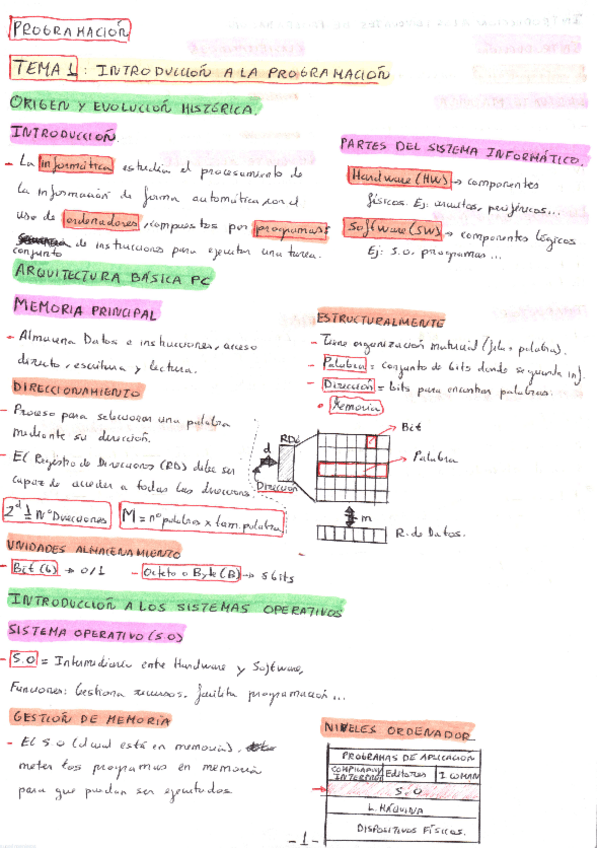 PROGRAMACIÓN
TEMA 1: INTRODUCCIÓN A LA PROGRAMACIÓN
ORIGEN Y EVOLUCIÓN HISTÓRICA.
INTRODUCCIÓN.
- La informática estudia el procesamiento de
la información de forma automática por el
uso de ordenadores, compuestos por programas:
conjunto de instrucciones para ejecutar una tarea.
PARTES DEL SISTEMA INFORMÁTICO.
Hardware (HW) → componentes
físicos. Ej: circuitos, periféricos...
Software (SW) → componentes lógicos
Ej: S.O, programas...
ARQUITECTURA BÁSICA PC
MEMORIA PRINCIPAL
- Almacena Datos e instrucciones, acceso
directo, escritura y lectura.
DIRECCIONAMIENTO
- Proceso para seleccionar una palabra
mediante su dirección.
- El Registro de Direcciones (RD) debe ser
capaz de acceder a todas las direcciones.
2^d Nº Direcciones
M = nº palabras x tam. palabra
ESTRUCTURALMENTE
- Tiene organización matricial (fila, palabra).
- Palabra = conjunto de bits donde se guarda inf.
- Dirección = bits para encontrar palabras.
• Memoria
RD
d
Dirección
Bit
Palabra
m
R. de Datos.
UNIDADES ALMACENAMIENTO
- Bit (b) → 0/1
- Octeto o Byte (B) → 8 bits
INTRODUCCIÓN A LOS SISTEMAS OPERATIVOS
SISTEMA OPERATIVO (S.O)
- S.O = Intermediario entre Hardware y Software,
Funciones: Gestiona recursos, facilita programación...
GESTIÓN DE MEMORIA
- El S.O (el cual está en memoria),
meter los programas en memoria
para que puedan ser ejecutados
NIVELES ORDENADOR
PROGRAMAS DE APLICACIÓN
COMPILADOR INTERPRETE
Editores
I COMAN
S.O
L. MÁQUINA
DISPOSITIVOS FÍSICOS.
-1-